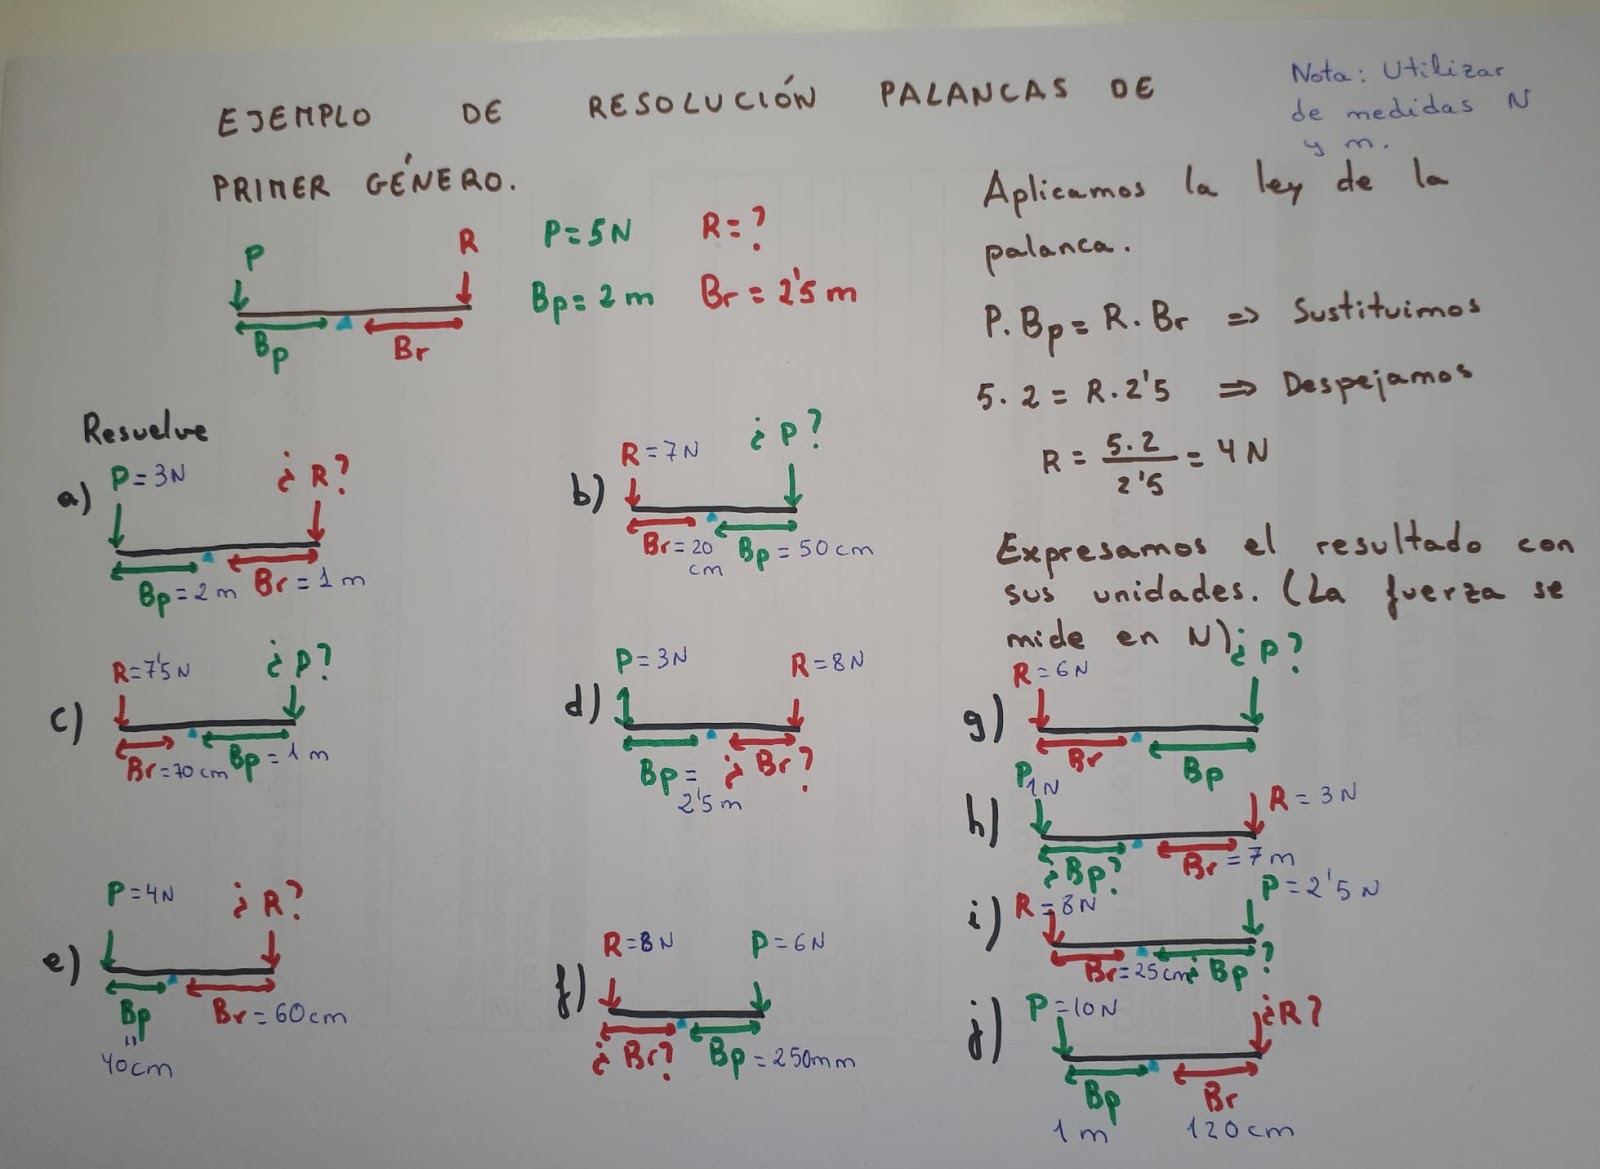 EJEMPLO DE RESOLUCIÓN PALANCAS DE
PRIMER GÉNERO.
Nota: Utilizar
de medidas N
y m.
P
R
Bp
Br
P=5N R=?
Bp=2m Br=2'5m
Aplicamos la ley de la
palanca.
P.Bp=R.Br => Sustituimos
5.2=R.2'5 => Despejamos
R = 5.2 / 2'5 = 4N
Expresamos el resultado con
sus unidades. (La fuerza se
mide en N)
Resuelve
a) P=3N ¿R?
Bp=2m Br=1m
b) R=7N ¿P?
Br=20 cm Bp=50cm
c) R=7'5N ¿P?
Br=70cm Bp=1m
d) P=3N R=8N
Bp=2'5m ¿Br?
e) P=4N ¿R?
Bp " 40cm Br=60cm
f) R=8N P=6N
¿Br? Bp=250mm
g) R=6N ¿P?
Br Bp
h) P 1N R=3N
¿Bp? Br=7m
i) R=8N P=2'5N
Br=25cm ¿Bp?
j) P=10N ¿R?
Bp Br
1m 120cm